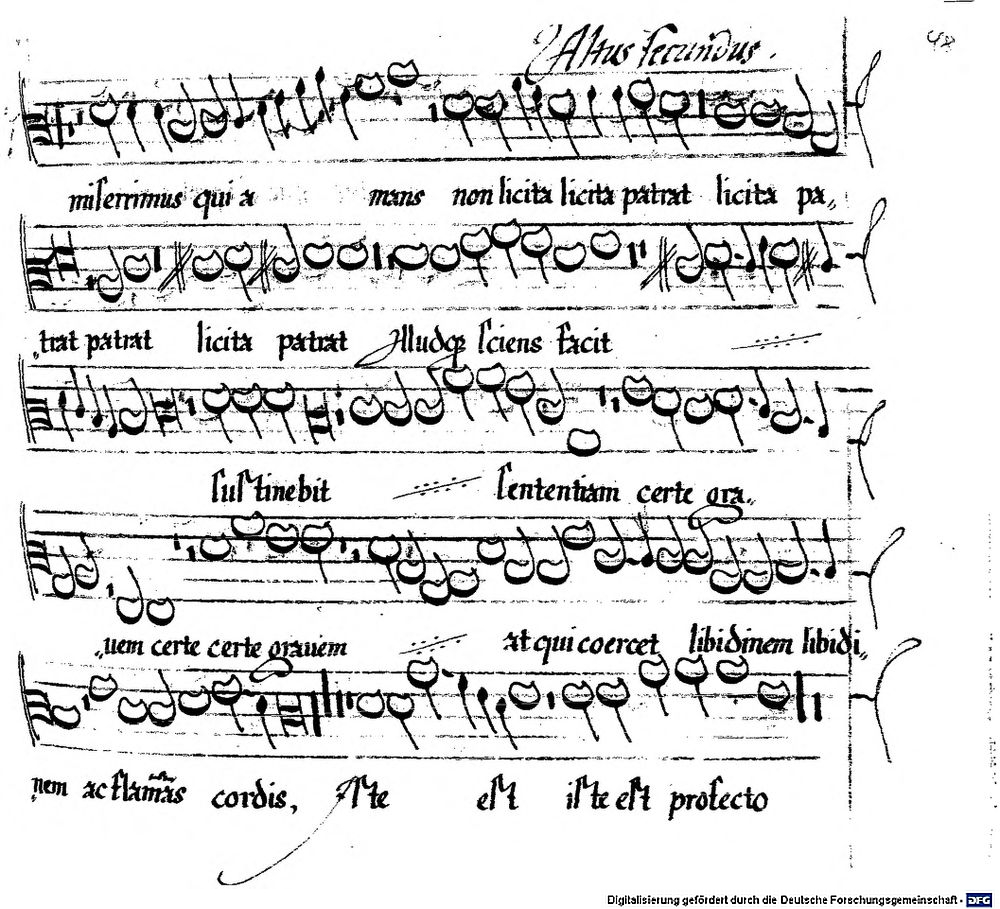 Altus secundus.
48
miserrimus qui a mans non licita licita patrat licita pa,,
,,trat patrat licita patrat Illudq3 sciens facit
sustinebit sententiam certe gra,,
,,uem certe certe grauem at qui coercet libidinem libidi,,
nem ac flamas cordis, Iste est iste est profecto
Digitalisierung gefördert durch die Deutsche Forschungsgemeinschaft - DFG